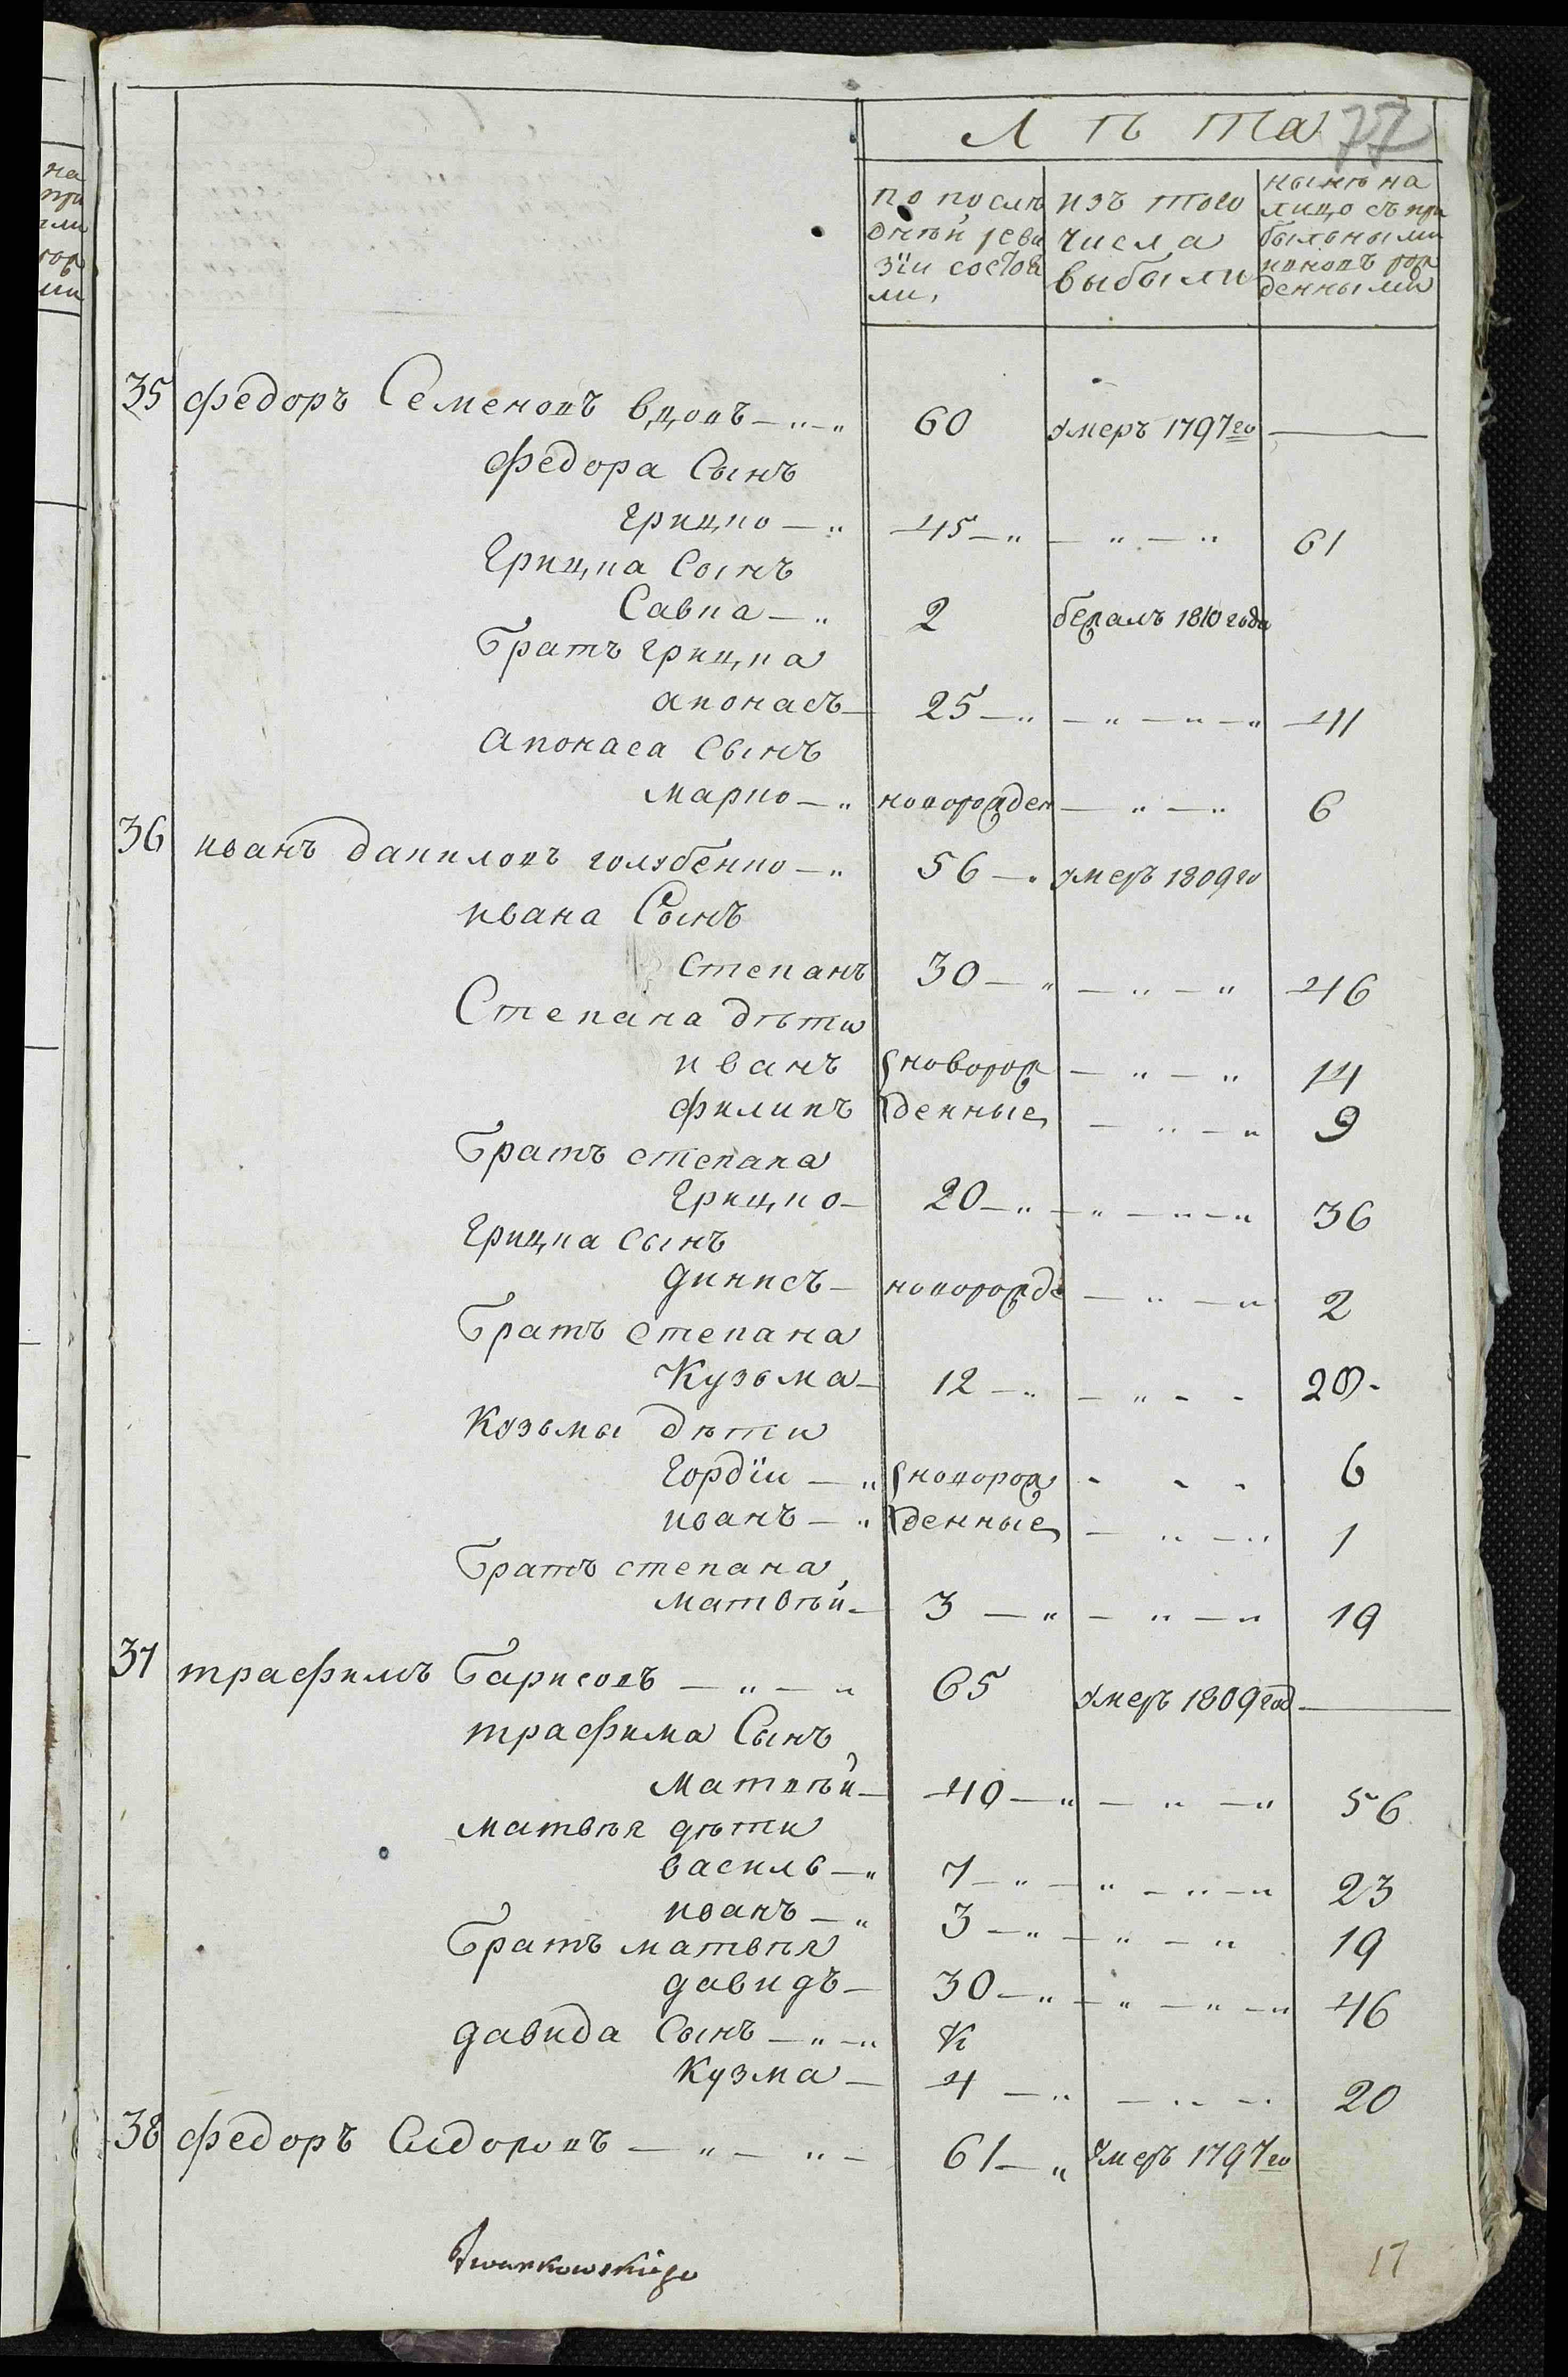 Лѣта 77
по послѣ
дней реви
зіи состоя
ли,
изъ того
числа
выбыли
нынѣ на
лицо съ при
былыми
и новорож
денными
35 федоръ Семеновъ вдовъ — „ — „ 60 умеръ 1797го —
федора Сынъ
грицко — „ 45 — „ — „ — „ 61
грицка Сынъ
Савка — „ 2 бежалъ 1810 года
Братъ грицка
апонасъ — 25 — „ — „ — „ — „ 41
апонаса сынъ
марко — „ новорожден — „ — „ 6
36 иванъ даниловъ голубенко — „ 56 — „ умеръ 1809го
ивана Сынъ
степанъ 30 — „ — „ — „ 46
Степана дѣти
иванъ новорож — „ — „ 14
филипъ денные — „ — „ 9
Братъ степана
грицко — 20 — „ — „ — „ — „ 36
грицка сынъ
динисъ — новорожде — „ — „ 2
Братъ степана
Кузьма — 12 — „ — „ - - 28 -
Козьмы дѣти
гордіи — „ новорож - - - 6
иванъ — „ денные — „ — „ 1
Братъ степана
матвѣй — 3 — „ — „ — „ 19
37 трафимъ Барисовъ — „ — „ 65 умеръ 1809 год —
трафима Сынъ
матвѣй — 40 — „ — „ — „ 56
матвѣя дѣти
василь — „ 7 — „ — „ — „ — „ 23
иванъ — „ 3 — „ — „ — „ 19
Братъ матвѣя
давидъ — 30 — „ — „ — „ — „ 46
давида Сынъ — „ — „ К
Кузма — 4 — „ — „ — „ 20
38 федоръ Сидоровъ — „ — „ — 61 — „ умеръ 1797го
17